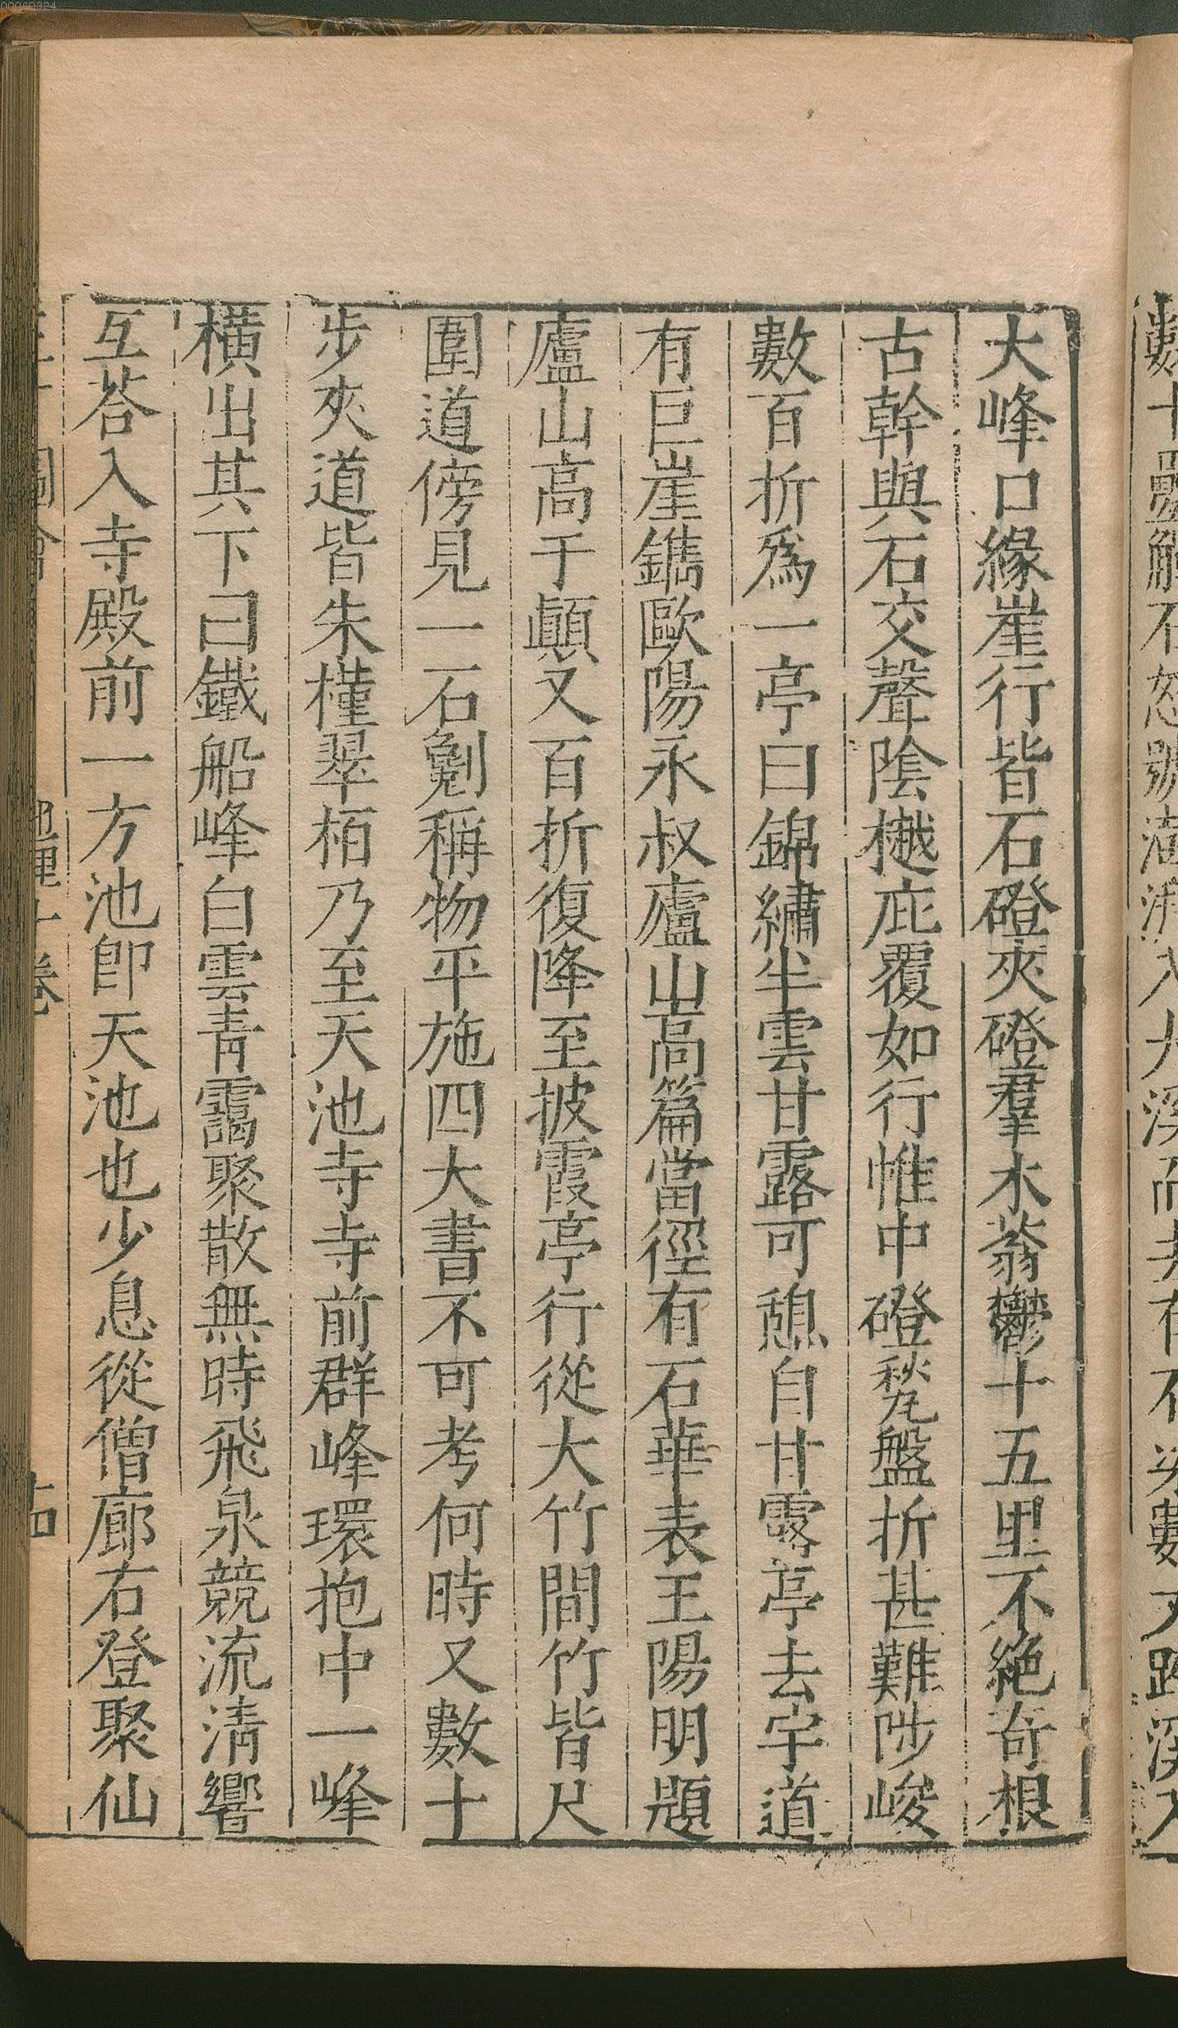 大峰口緣崖行皆石磴夾磴羣木蓊鬱十五里不絶奇根
古幹與石交聲陰樾庇覆如行帷中磴甃盤折甚難陟峻
數百折爲一亭曰錦繡半雲甘露可憩自甘露亭去宇道
有巨崖鐫歐陽永叔廬山高篇當徑有石華表王陽明題
廬山高于顚又百折復降至披霞亭行從大竹間竹皆尺
圍道傍見一石剜稱物平施四大書不可考何時又數十
步夾道皆朱槿翠栢乃至天池寺寺前群峰環抱中一峰
橫出其下曰鐵船峰白雲青靄聚散無時飛泉競流清響
互荅入寺殿前一方池卽天池也少息從僧廊右登聚仙
地理十卷